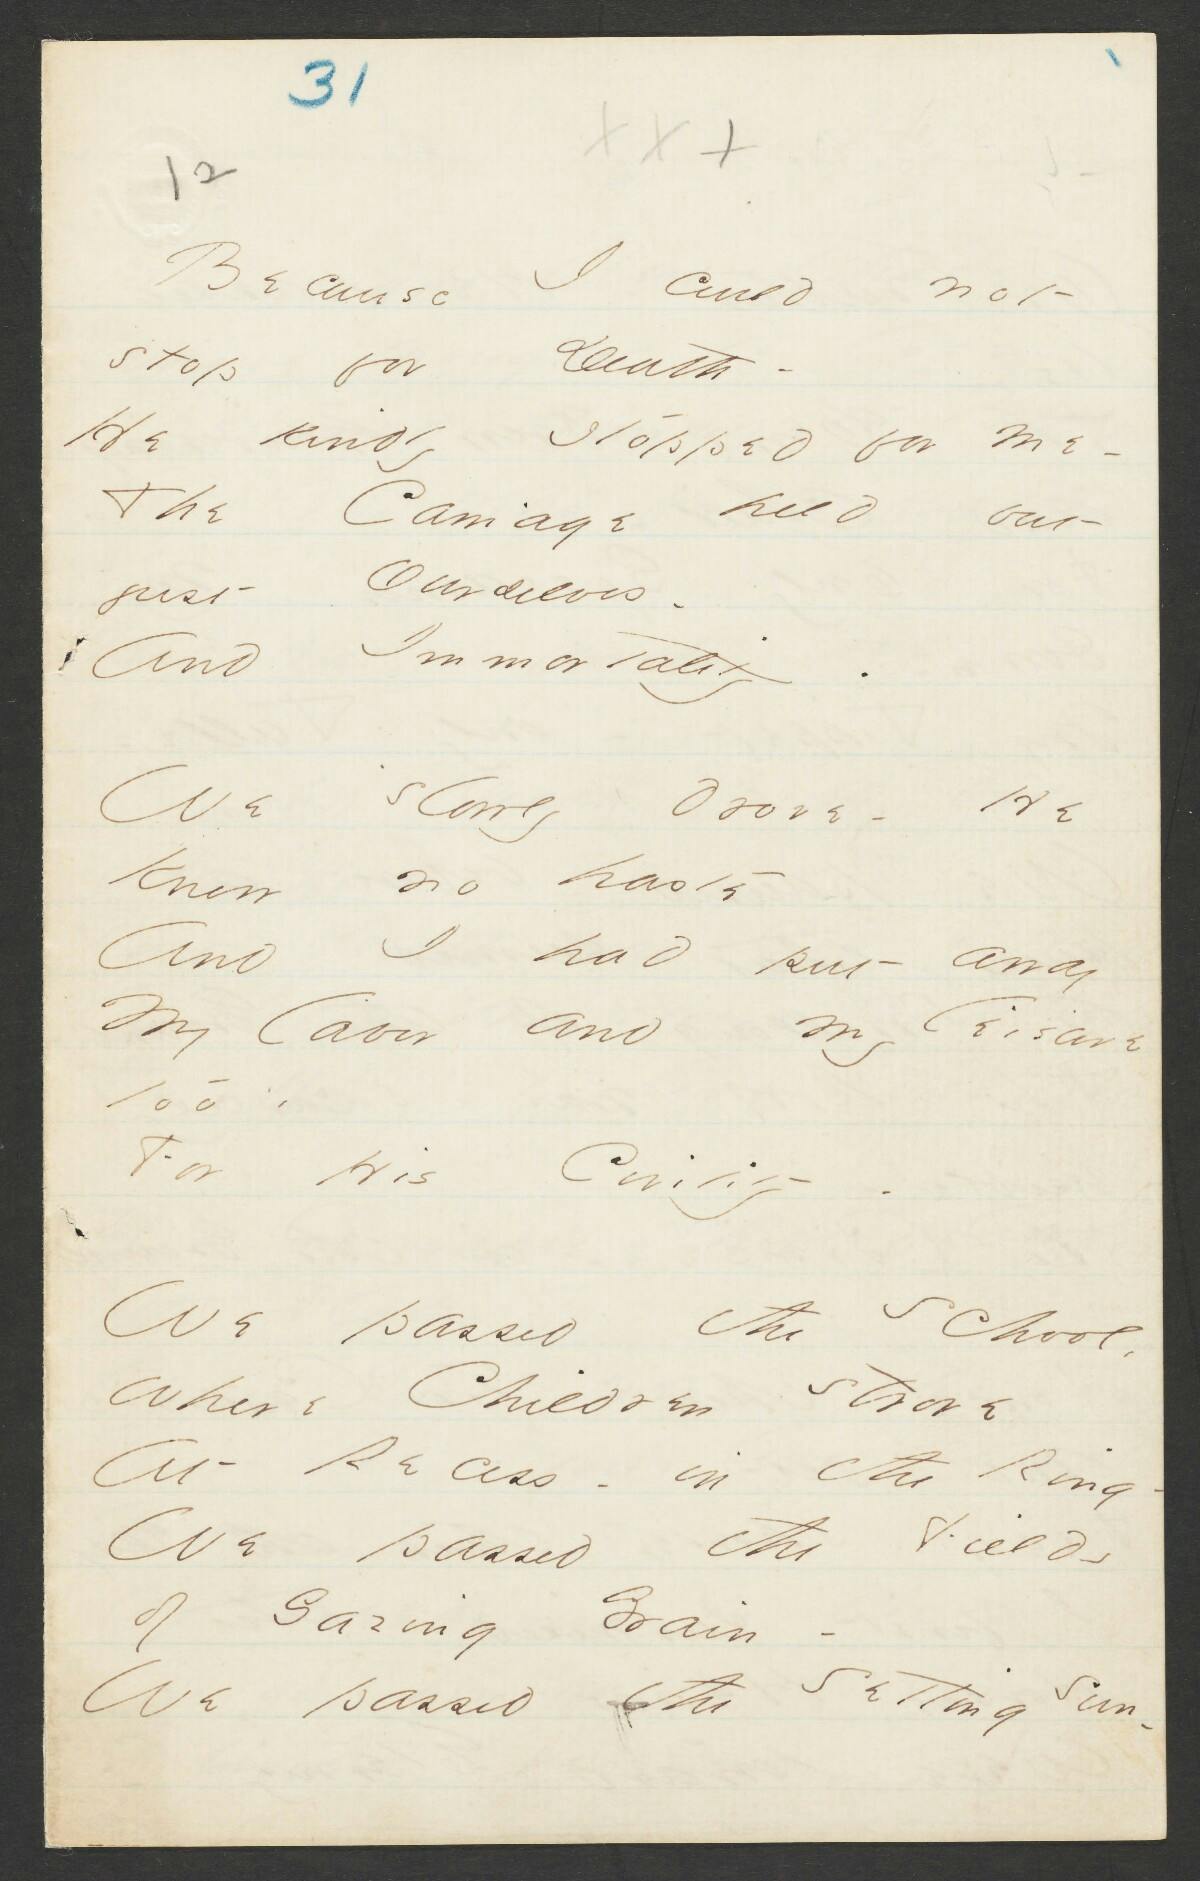 31
XXX
12
Because I could not
stop for Death -
He kindly stopped for me -
The Carriage held but
just Ourselves -
And Immortality .
We slowly drove - He
knew no haste
And I had put away
My labor and my leisure
too ,
For His Civility -
We passed the School,
where Children strove
At Recess - in the Ring -
We passed the Fields
of Gazing Grain -
We passed the Setting Sun -